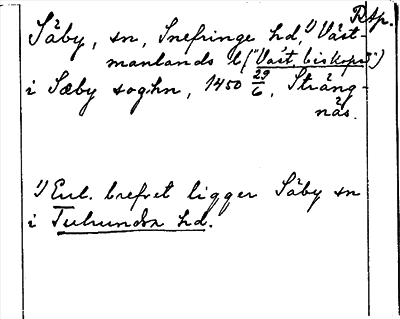 RAp.
Säby, sn, Snefringe hd,¹⁾ Väst-
manlands l ("Väst. biskops")
i Sæby soghn, 1450 29/6, Sträng-
näs.
¹⁾ Enl. brefvet ligger Säby sn
i Tuhundra hd.